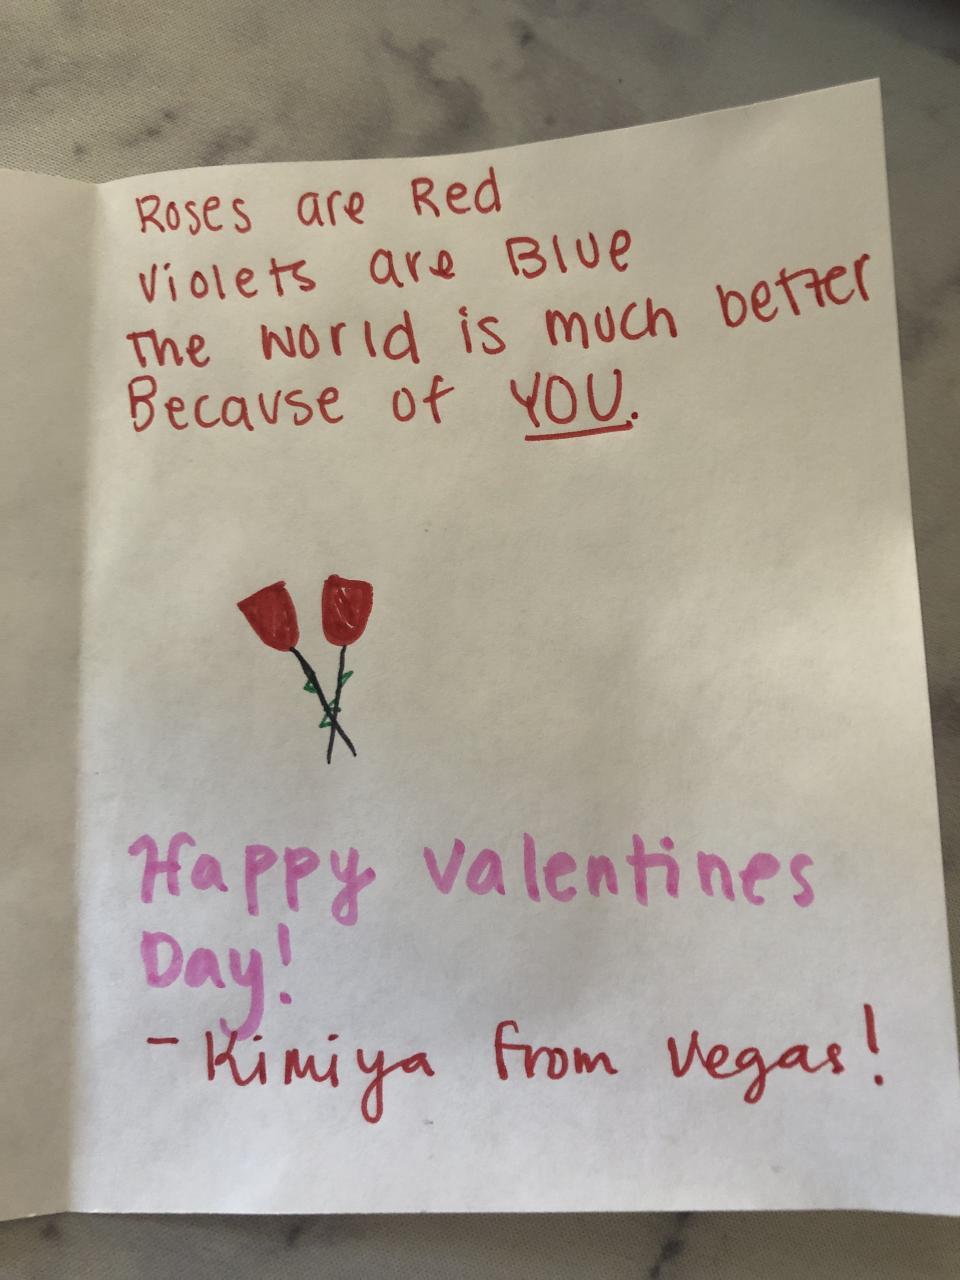 Roses are Red
Violets are Blue
The world is much better
Because of YOU.
Happy Valentines
Day!
- Kimiya from Vegas!